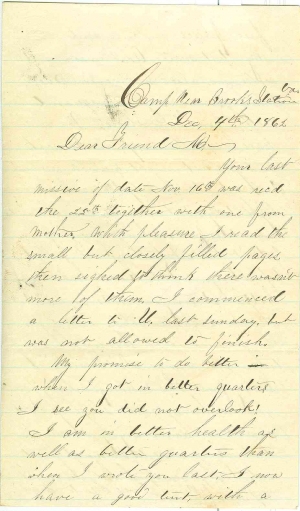 Camp Near Brooks Station Va
Dec, 4th 1862
Dear Friend M
Your last
missive of date Nov. 16th was rec'd
the 22d together with one from
Mother, With pleasure I read the
small but closely filled pages
then sighed to think there wasn't
more of them. I commenced
a letter to U. last sunday, but
was not allowed to finish.
My promise to do better —
when I got in better quarters
I see you did not overlook!
I am in better health as
well as better quarters than
when I wrote you last. I now
have a good tent with a